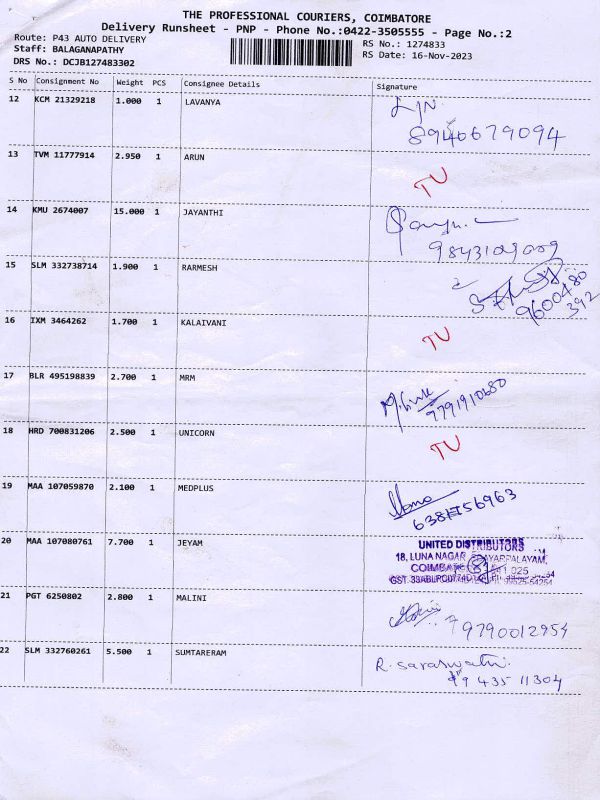 THE PROFESSIONAL COURIERS, COIMBATORE
Delivery Runsheet - PNP - Phone No.:0422-3505555 - Page No.:2
Route: P43 AUTO DELIVERY
RS No.: 1274833
Staff: BALAGANAPATHY
RS Date: 16-Nov-2023
DRS No.: DCJB127483302
S No Consignment No Weight PCS Consignee Details Signature
12 KCM 21329218 1.000 1 LAVANYA
8940679094
13 TVM 11777914 2.950 1 ARUN
TU
14 KMU 2674007 15.000 1 JAYANTHI
9843109009
15 SLM 332738714 1.900 1 RARMESH
9600480
392
16 IXM 3464262 1.700 1 KALAIVANI
TU
17 BLR 495198839 2.700 1 MRM
9791910680
18 HRD 700831206 2.500 1 UNICORN
TU
19 MAA 107059870 2.100 1 MEDPLUS
20 MAA 107080761 7.700 1 JEYAM
UNITED DISTRIBUTORS
18, LUNA NAGAR
21 PGT 6250802 2.800 1 MALINI
9790012954
22 SLM 332760261 5.500 1 SUMTARERAM
R. Saraswathi
99435 11304